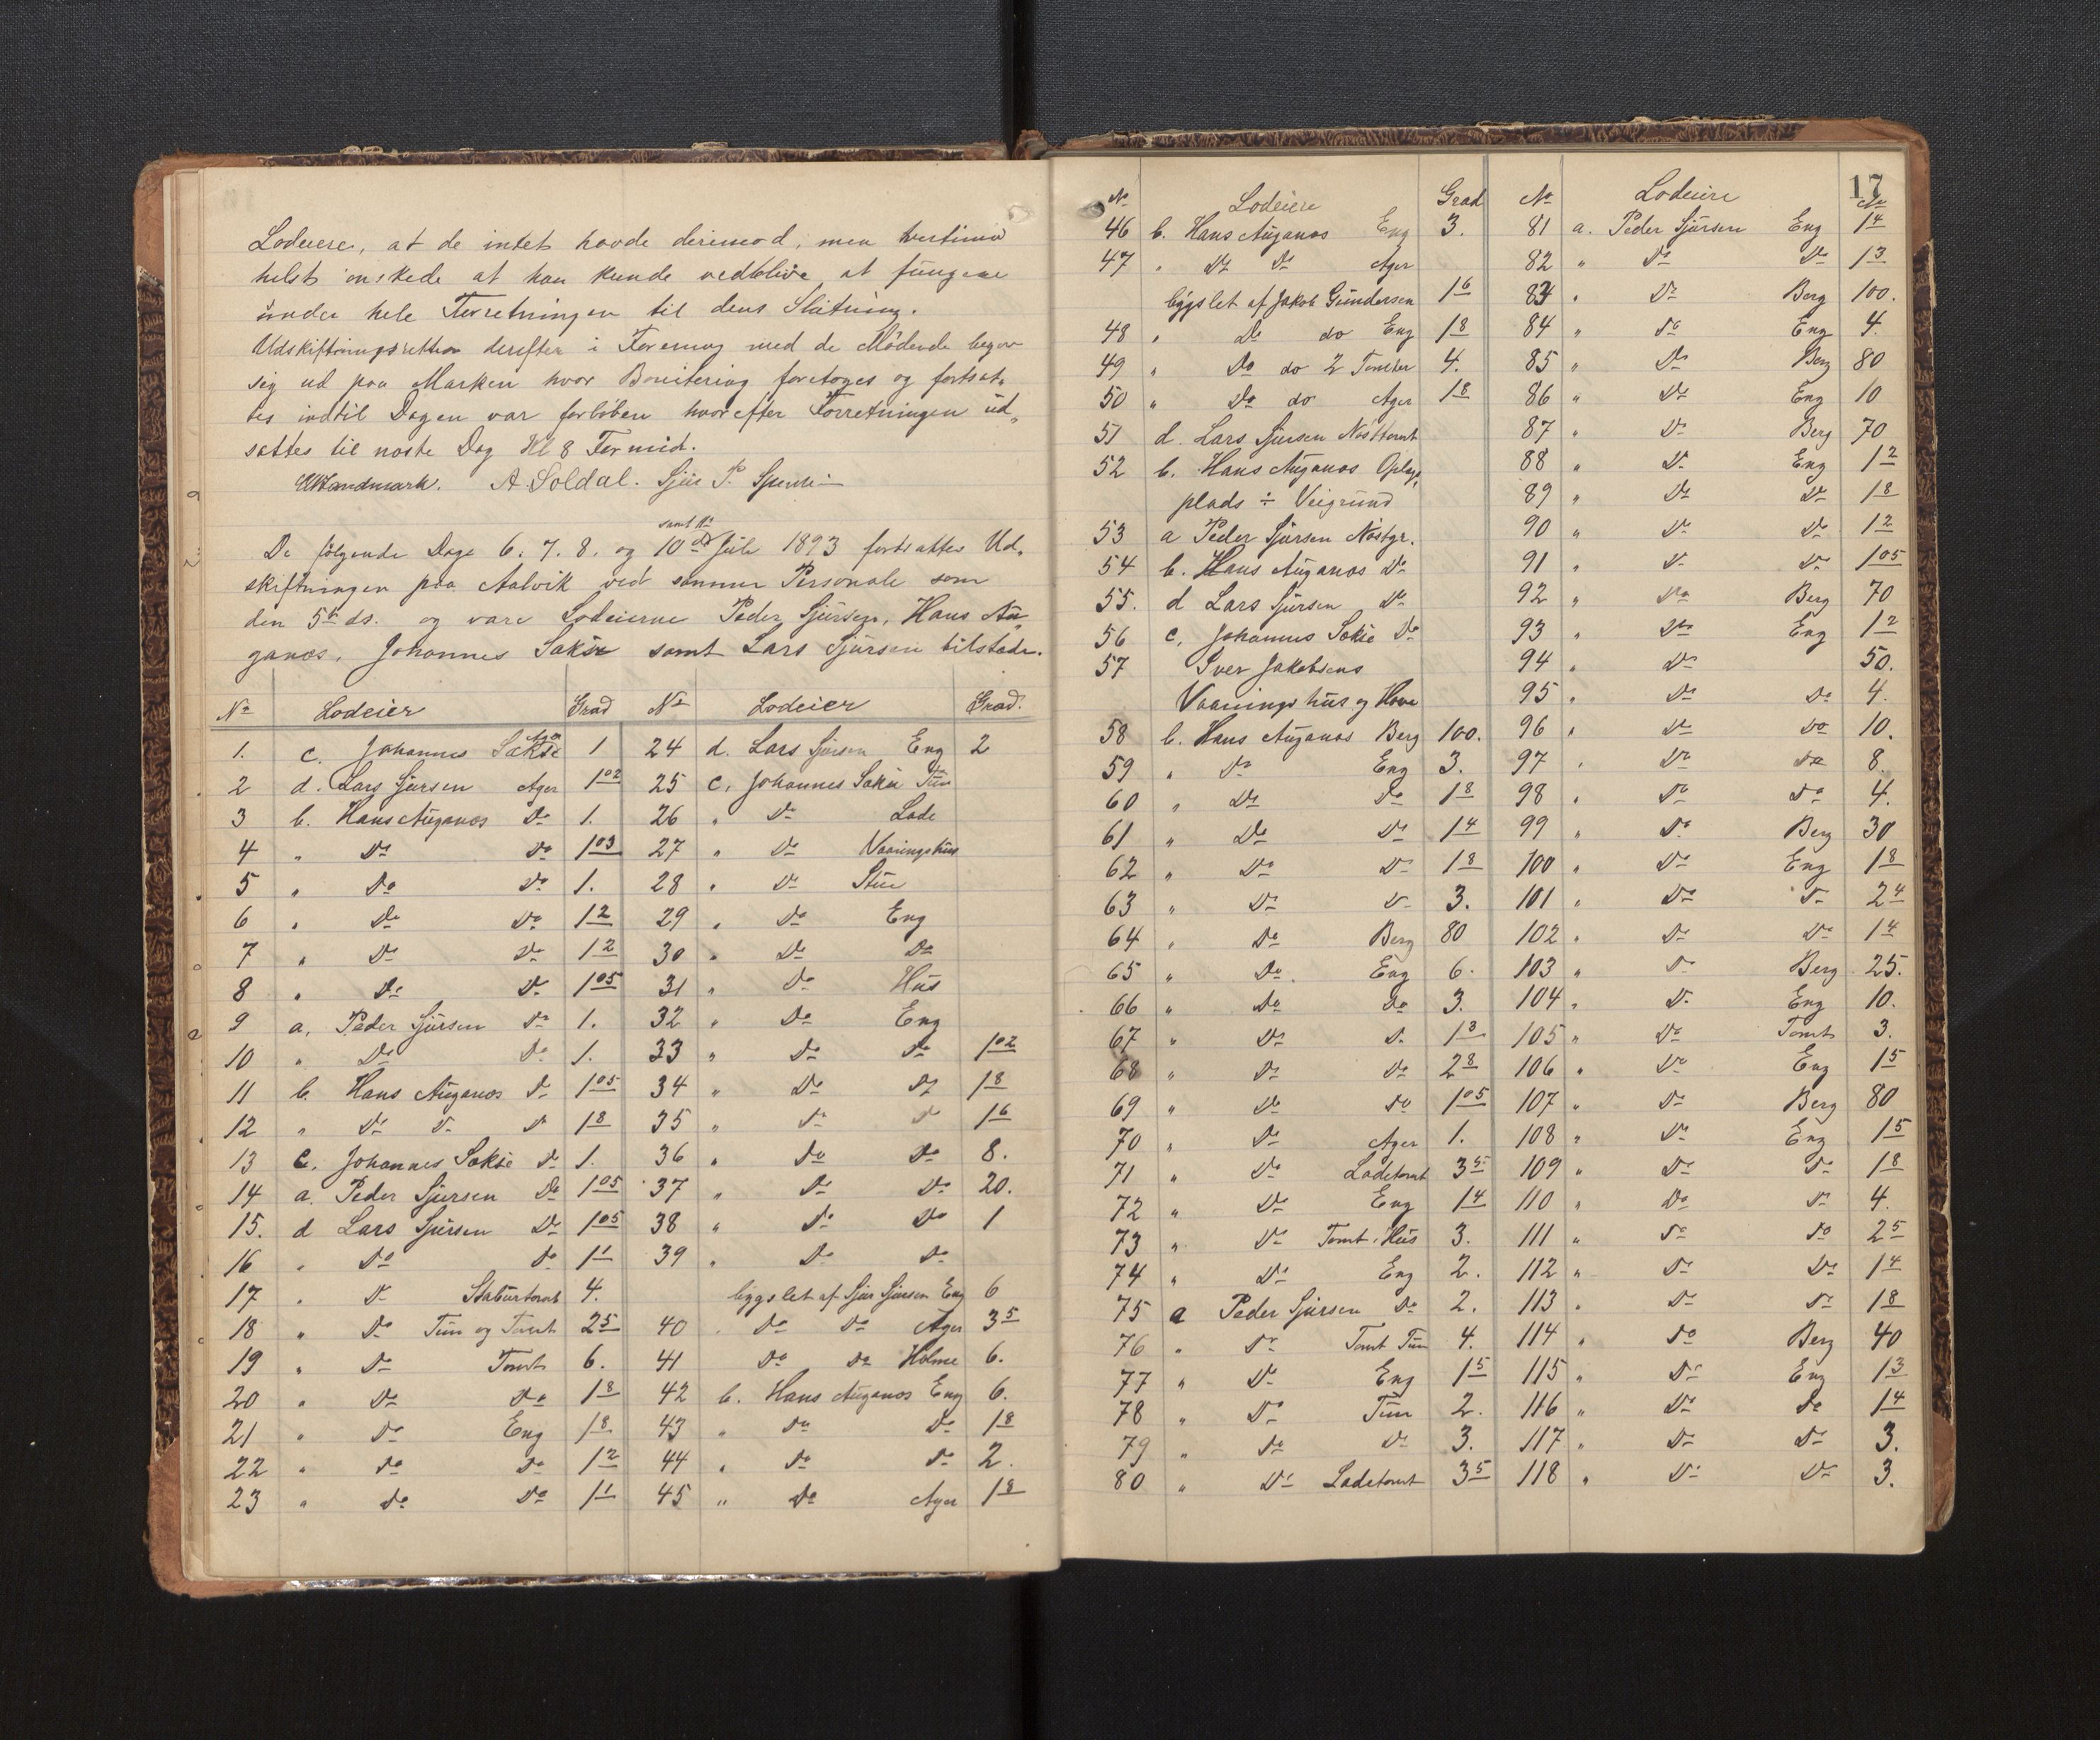 Lodeiere, at de intet havde derimod, men tvertimod
helst ønskede at han kunde vedblive at fungere
under hele Forretningen til dens Slutning.
Udskiftningsretten derefter i Forening med de Mødende begav
sig ud paa Marken hvor Bonitering foretoges og fortsat-
tes indtil Dagen var forløben hvorefter Forretningen ud-
sattes til næste Dag Kl 8 Formid.
A. Soldal. Sjur P.
samt 11te
De følgende Dage 6. 7. 8. og 10de Juli 1893 fortsattes Ud-
skiftningen paa Aalvik ved samme Personale som
den 5te ds. og vare Lodeierne Peder Sjursen, Hans Au-
ganæs, Johannes Sakse samt Lars Sjursen tilstede.
No Lodeier Grad No Lodeier Grad.
1. c. Johannes Sakse Ager 1 24 d. Lars Sjursen Eng 2
2 d. Lars Sjursen Ager 1 02 25 c. Johannes Sakse Tun
3 b. Hans Auganæs Do 1. 26 " Do Lade
4 " Do Do 1 03 27 " Do Vaaningshus
5 " Do Do 1. 28 " Do Stue
6 " Do Do 1 2 29 " Do Eng
7 " Do Do 1 2 30 " Do Do
8 " Do Do 1 05 31 " Do Hus
9 a. Peder Sjursen Do 1. 32 " Do Eng
10 " Do Do 1. 33 " Do Do 1 02
11 b. Hans Auganæs Do 1 05 34 " Do Do 1 8
12 " Do Do Do 1 8 35 " Do Do 1 6
13 c. Johannes Sakse Do 1. 36 " Do Do 8.
14 a. Peder Sjursen Do 1 05 37 " Do Do 20.
15. d Lars Sjursen Do 1 05 38 " Do Do 1
16 " Do Do 1 1 39 " Do Do
17 " Do Staburtomt 4. bygslet af Sjur Sjursen Eng 6
18 " Do Tun og Tomt 2 5 40 " Do Do Ager 3 5
19 " Do Tomt 6. 41 Do Do Holme 6.
20 " Do Do 1 8 42 b. Hans Auganæs Eng 6.
21 " Do Eng 1 8 43 " Do Do 1 8
22 " Do Do 1 2 44 " Do Do 2.
23 " Do Do 1 1 45 " Do Ager 1 8
17
No Lodeiere Grad No Lodeiere No
46 b. Hans Auganæs Eng 3. 81 a. Peder Sjursen Eng 1 4
47 " Do Do Ager 82 " Do Do 1 3
bygslet af Jakob Gundersen 1 6 83 " Do Berg 100.
48 " Do do Eng 1 8 84 " Do Eng 4.
49 " Do do 2 Tomter 4. 85 " Do Berg 80
50 " Do do Ager 1 8 86 " Do Eng 10
51 d. Lars Sjursen Nøsttomt 87 " Do Berg 70
52 b. Hans Auganæs Oplags- 88 " Do Eng 1 2
plads ÷ Veigrund 89 " Do Do 1 8
53 a Peder Sjursen Nøstgr. 90 " Do Do 1 2
54 b. Hans Auganæs Do 91 " Do Do 1 05
55. d Lars Sjursen Do 92 " Do Berg 70
56 c. Johannes Sakse Do 93 " Do Eng 1 2
57 Iver Jakobsens 94 " Do 50.
Vaaningshus og Have 95 " Do Do 4.
58 b. Hans Auganæs Berg 100. 96 " Do Do 10.
59 " Do Eng 3. 97 " Do Do 8.
60 " Do Do 1 8 98 " Do Do 4.
61 " Do Do 1 4 99 " Do Berg 30
62 " Do Do 1 8 100 " Do Eng 1 8
63 " Do Do 3. 101 " Do Do 2 4
64 " Do Berg 80 102 " Do Do 1 4
65 " Do Eng 6. 103 " Do Berg 25.
66 " Do Do 3. 104 " Do Eng 10.
67 " Do Do 1 3 105 " Do Tomt 3.
68 " Do Do 2 8 106 " Do Eng 1 5
69 " Do Do 1 05 107 " Do Berg 80
70 " Do Ager 1. 108 " Do Eng 1 5
71 " Do Ladetomt 3 5 109 " Do Do 1 8
72 " Do Eng 1 4 110 " Do Do 4.
73 " Do Tomt. Hus 3. 111 " Do Do 2 5
74 " Do Eng 2. 112 " Do Do 1 4
75 a Peder Sjursen Do 2. 113 " Do Do 1 8
76 " Do Tomt Tun 4. 114 " Do Berg 40
77 " Do Eng 1 5 115 " Do Eng 1 3
78 " Do Tun 2. 116 " Do Do 1 4
79 " Do Do 3. 117 " Do Do 3.
80 " Do Ladetomt 3 5 118 " Do Do 3.